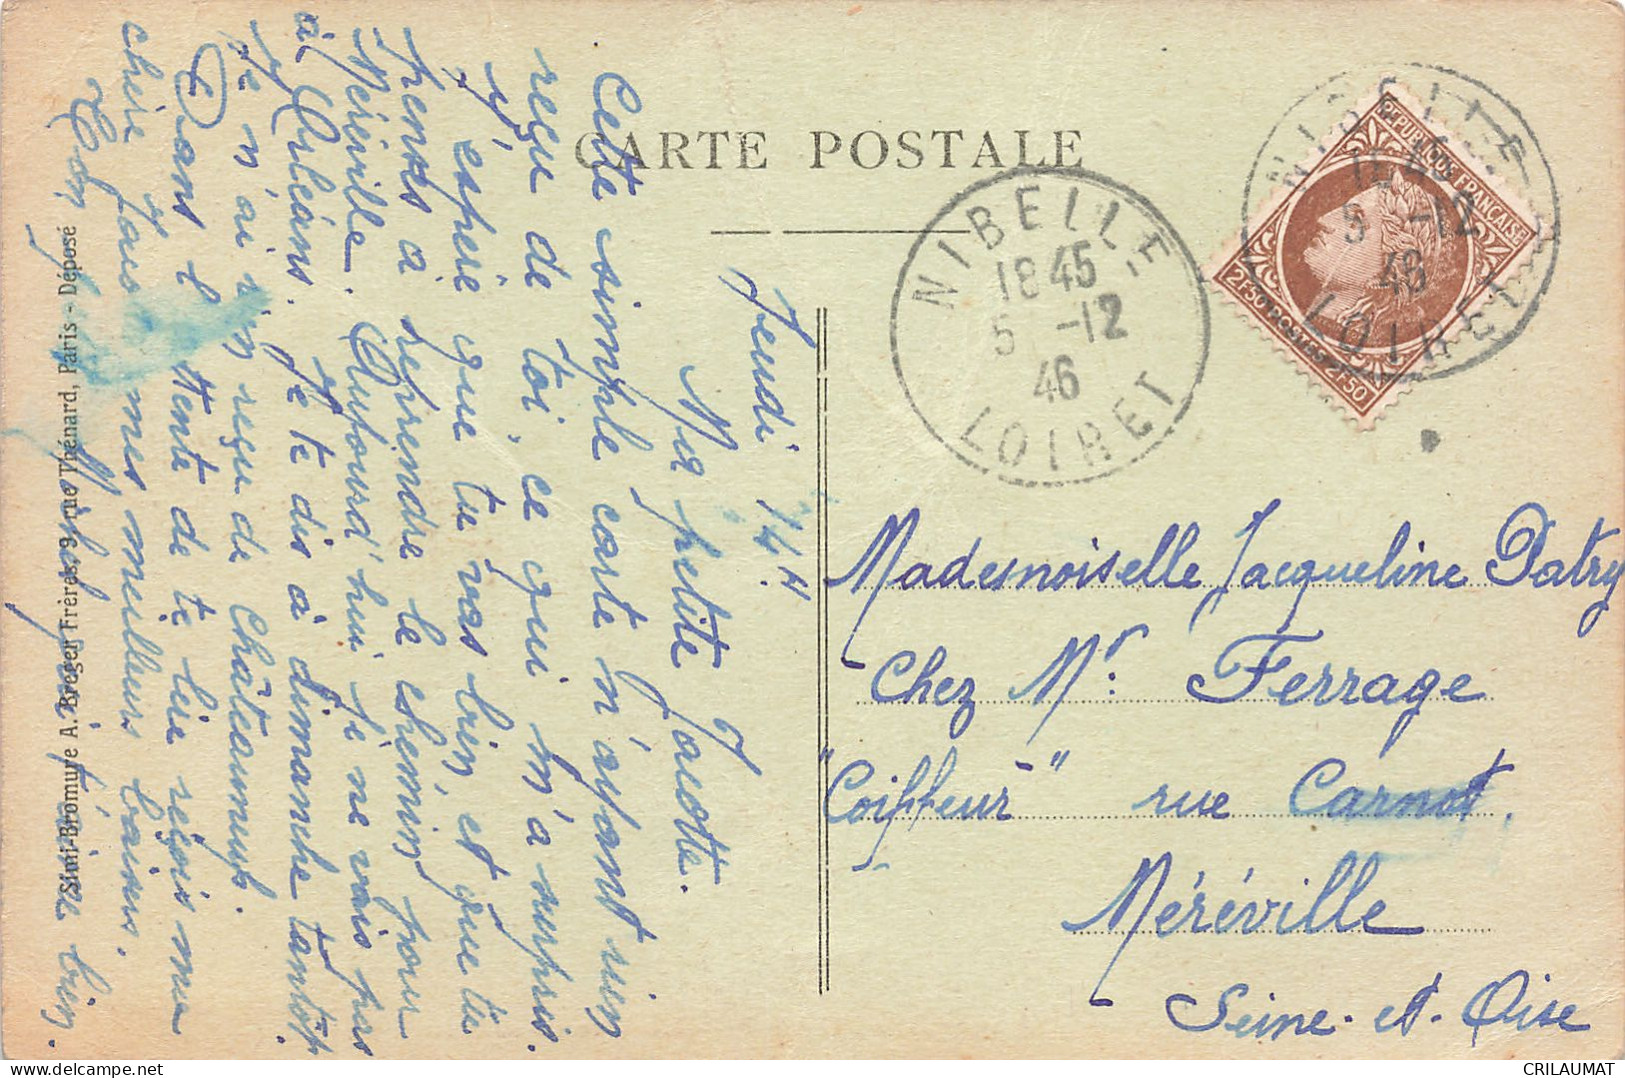 CARTE POSTALE
Jeudi 14 H
Ma petite Jacotte.
Cette simple carte n'ayant rien
reçu de toi, ce qui m'a surpris.
J'espère que tu vas bien, et que tu
penses à reprendre le chemin pour
Méréville. Aujourd'hui je ne vais pas
à Orléans. Je te dis à dimanche tantôt
Je n'ai rien reçu de Châteauneuf.
Dans l'attente de te lire reçois ma
chère Jacotte mes meilleurs baisers.
Ton
qui t'aime bien.
Simi-Bromure A. Breger Frères, 9 rue Thénard, Paris - Déposé
NIBELLE
18 45
5 -12
46
LOIRET
NIBELLE
18 45
5 -12
46
LOIRET
REPUBLIQUE FRANÇAISE
2F50 POSTES 2F50
Mademoiselle Jacqueline Patry
Chez Mr. Ferrage
"Coiffeur" rue Carnot.
Méréville
Seine-et-Oise
CRILAUMAT